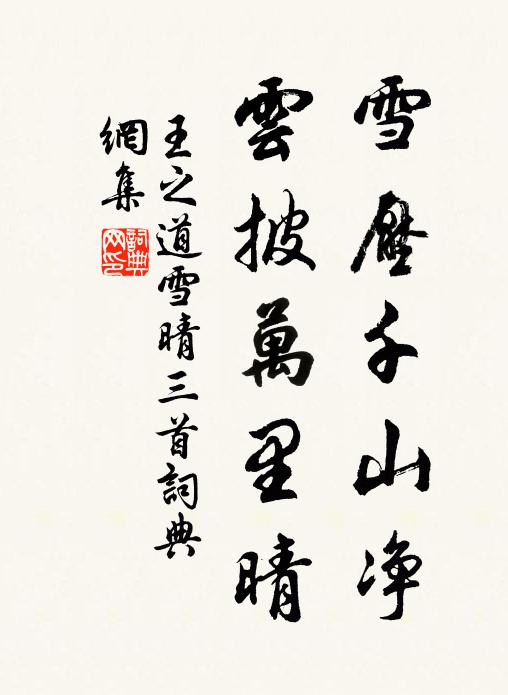 雪壓千山净
雲披萬里晴
王之道雪晴三首詞典
網集
詞典网印